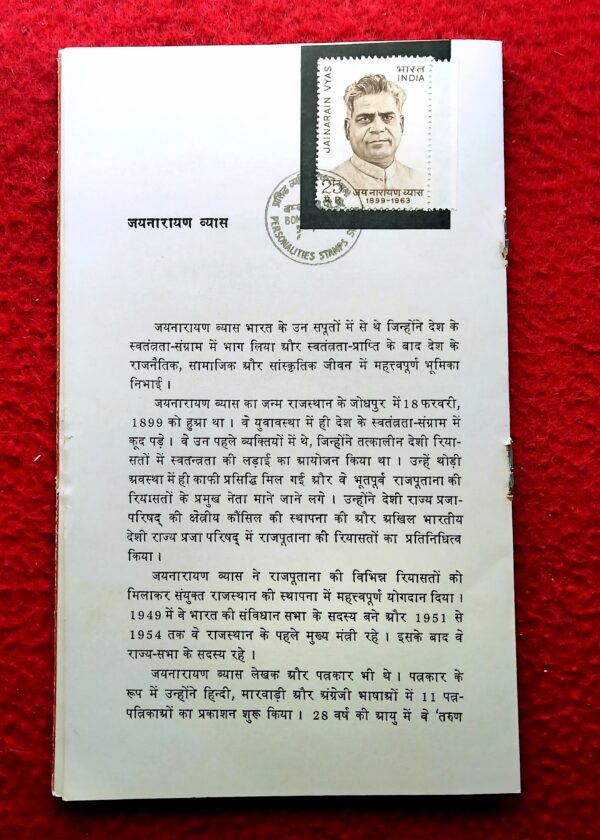 JAINARAIN VYAS
भारत
INDIA
25
जय नारायण व्यास
1899-1963
PERSONALITIES STAMPS
जयनारायण व्यास
जयनारायण व्यास भारत के उन सपूतों में से थे जिन्होंने देश के
स्वतंत्रता-संग्राम में भाग लिया और स्वतंत्रता-प्राप्ति के बाद देश के
राजनैतिक, सामाजिक और सांस्कृतिक जीवन में महत्त्वपूर्ण भूमिका
निभाई ।
जयनारायण व्यास का जन्म राजस्थान के जोधपुर में 18 फरवरी,
1899 को हुआ था । वे युवावस्था में ही देश के स्वतंत्रता-संग्राम में
कूद पड़े । वे उन पहले व्यक्तियों में थे, जिन्होंने तत्कालीन देशी रिया-
सतों में स्वतन्त्रता की लड़ाई का आयोजन किया था । उन्हें थोड़ी
अवस्था में ही काफी प्रसिद्धि मिल गई और वे भूतपूर्व राजपूताना की
रियासतों के प्रमुख नेता माने जाने लगे । उन्होंने देशी राज्य प्रजा-
परिषद् की क्षेत्रीय कौंसिल की स्थापना की और अखिल भारतीय
देशी राज्य प्रजा परिषद् में राजपूताना की रियासतों का प्रतिनिधित्व
किया ।
जयनारायण व्यास ने राजपूताना की विभिन्न रियासतों को
मिलाकर संयुक्त राजस्थान की स्थापना में महत्त्वपूर्ण योगदान दिया ।
1949 में वे भारत की संविधान सभा के सदस्य बने और 1951 से
1954 तक वे राजस्थान के पहले मुख्य मंत्री रहे । इसके बाद वे
राज्य-सभा के सदस्य रहे ।
जयनारायण व्यास लेखक और पत्रकार भी थे । पत्रकार के
रूप में उन्होंने हिन्दी, मारवाड़ी और अंग्रेजी भाषाओं में 11 पत्र-
पत्रिकाओं का प्रकाशन शुरू किया । 28 वर्ष की आयु में वे 'तरुण